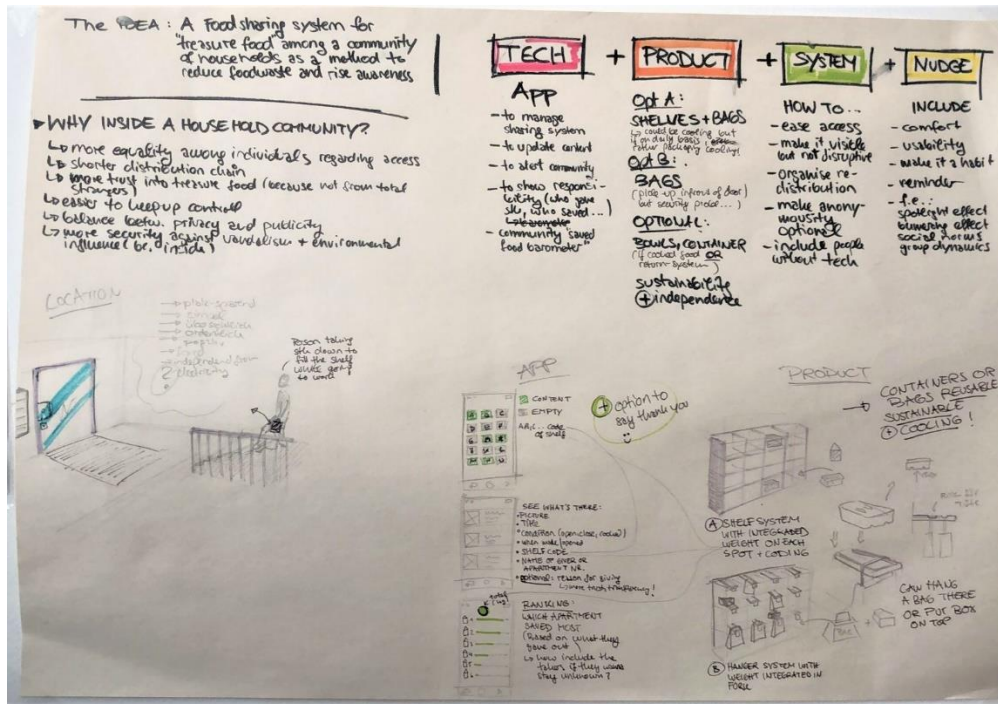 The IDEA : A Food sharing system for
"treasure food" among a community
of households as a method to
reduce foodwaste and rise awareness
WHY INSIDE A HOUSEHOLD COMMUNITY?
↳ more equality among individuals regarding access
↳ shorter distribution chain
↳ more trust into treasure food (because not from total
strangers)
↳ easier to keep up control
↳ balance betw. privacy and publicity
↳ more security against vandalism + environmental
influence (br. inside)
TECH + PRODUCT + SYSTEM + NUDGE
APP
- to manage
sharing system
- to update content
- to alert community
- to show responsi-
bility (who gave
sth, who saved...)
- community "saved
food barometer"
Opt A:
SHELVES + BAGS
↳ could be cooling but
if on daily basis,
rather packaging cooling)
Opt B:
BAGS
(pick-up infront of door
but security problem...)
OPTIONAL:
BOWLS, CONTAINER
(if cooked food OR
return-system)
sustainability
+ independence
HOW TO...
- ease access
- make it visible
but not disruptive
- organise re-
distribution
- make anony-
mousity
optional
- include people
without tech
INCLUDE
- comfort
- usability
- make it a habit
- reminder
- f.e.:
spotlight effect
social norms
group dynamics
LOCATION
Person taking
sth down to
fill the shelf
while going
to work
APP
CONTENT
EMPTY
A,B,C... code
of shelf
+ option to
say thank you
SEE WHAT'S THERE:
• PICTURE
• TIME
• condition (open, close, cooked)
• when made/opened
• SHELF CODE
• NAME OF GIVER OR
APARTMENT NR.
• optional: reason for giving
RANKING:
WHICH APARTMENT
SAVED MOST
(Based on what they
gave out)
↳ how include the
takers if they wanna
stay unknown?
PRODUCT
→ CONTAINERS OR
BAGS REUSABLE
SUSTAINABLE
+ COOLING!
A SHELF SYSTEM
WITH INTEGRATED
WEIGHT ON EACH
SPOT + CODING
CAN HANG
A BAG THERE
OR PUT BOX
ON TOP
B HANGER SYSTEM WITH
WEIGHT INTEGRATED IN
FORK